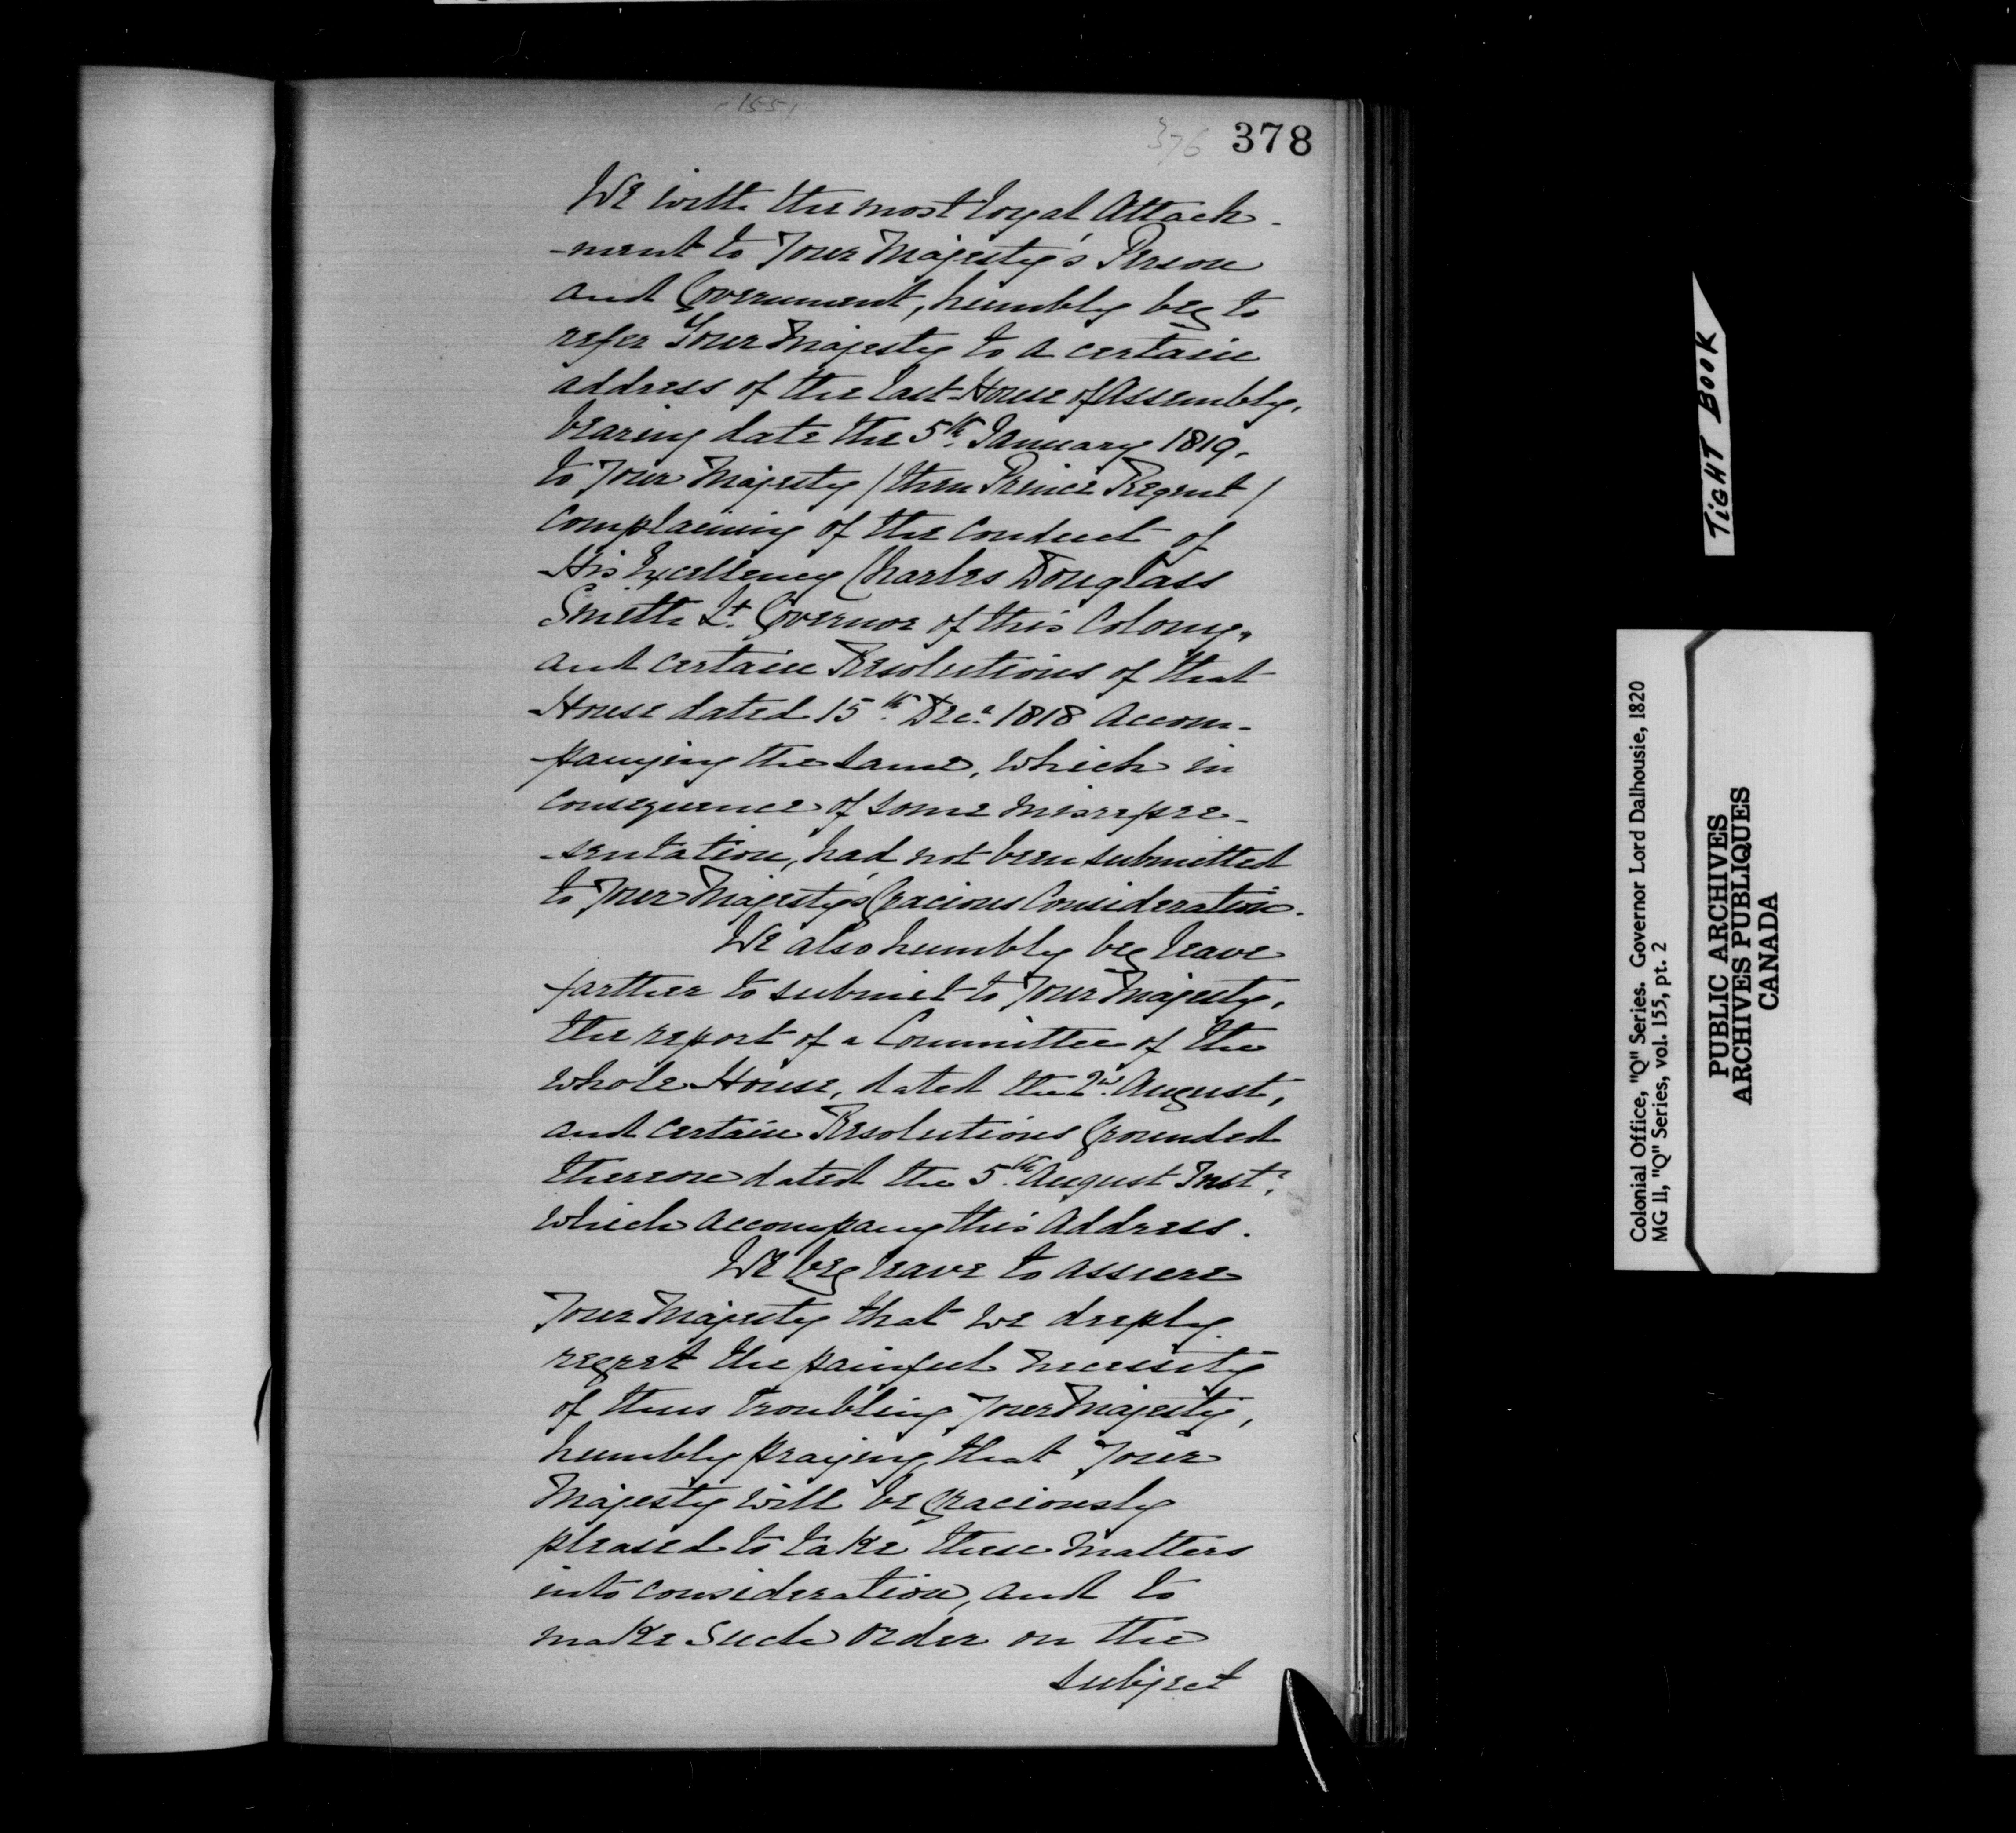 155 1
376 378
We with the most loyal Attach-
-ment to Your Majesty's Person
and Government, humbly beg to
refer Your Majesty to a certain
address of the last House of Assembly,
bearing date the 5th January 1819,
to Your Majesty / then Prince Regent /
complaining of the conduct of
His Excellency Charles Douglass
Smith Lt. Governor of this Colony,
and certain Resolutions of that
House dated 15th Decr 1818 accom-
panying the same, which in
consequence of some misrepre-
-sentation, had not been submitted
to Your Majesty's Gracious Consideration.
We also humbly beg leave
farther to submit to Your Majesty,
the report of a Committee of the
whole House, dated the 2nd August,
and certain Resolutions grounded
thereon dated the 5th August Inst.
which accompany this Address.
We beg leave to assure
Your Majesty that we deeply
regret the painful necessity
of thus troubling Your Majesty,
humbly praying that Your
Majesty will be graciously
pleased to take these matters
into consideration, and to
make such order on the
subject
TIGHT BOOK
Colonial Office, "Q" Series. Governor Lord Dalhousie, 1820
MG 11, "Q" Series, vol. 155, pt. 2
PUBLIC ARCHIVES
ARCHIVES PUBLIQUES
CANADA